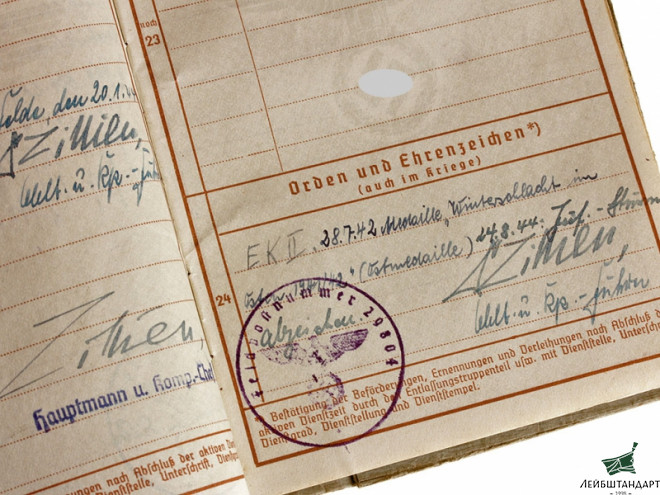 noch
23
Felde, den 20.1.
Zillien,
Oblt. u. Kp.-Führ
Zillien,
Hauptmann u. Komp.-Che
nach Abschluß der aktiven
Dienststelle, Unterschrift, Dienst
Orden und Ehrenzeichen*)
(auch im Kriege)
24
EK II, 28.7.42 Medaille „Winterschlacht im
Osten 1941/42" (Ostmedaille) 24.8.44. Inf.-Sturm
abzeichen.
Zillien,
Oblt. u. Kp.-Führer
Feldpostnummer 29804
*) Bestätigung der Beförderungen, Ernennungen und Verleihungen nach Abschluß der
aktiven Dienstzeit durch den Entlassungstruppenteil usw. mit Dienststelle, Unterschrift,
Dienstgrad, Dienststellung und Dienststempel.
ЛЕЙБШТАНДАРТ